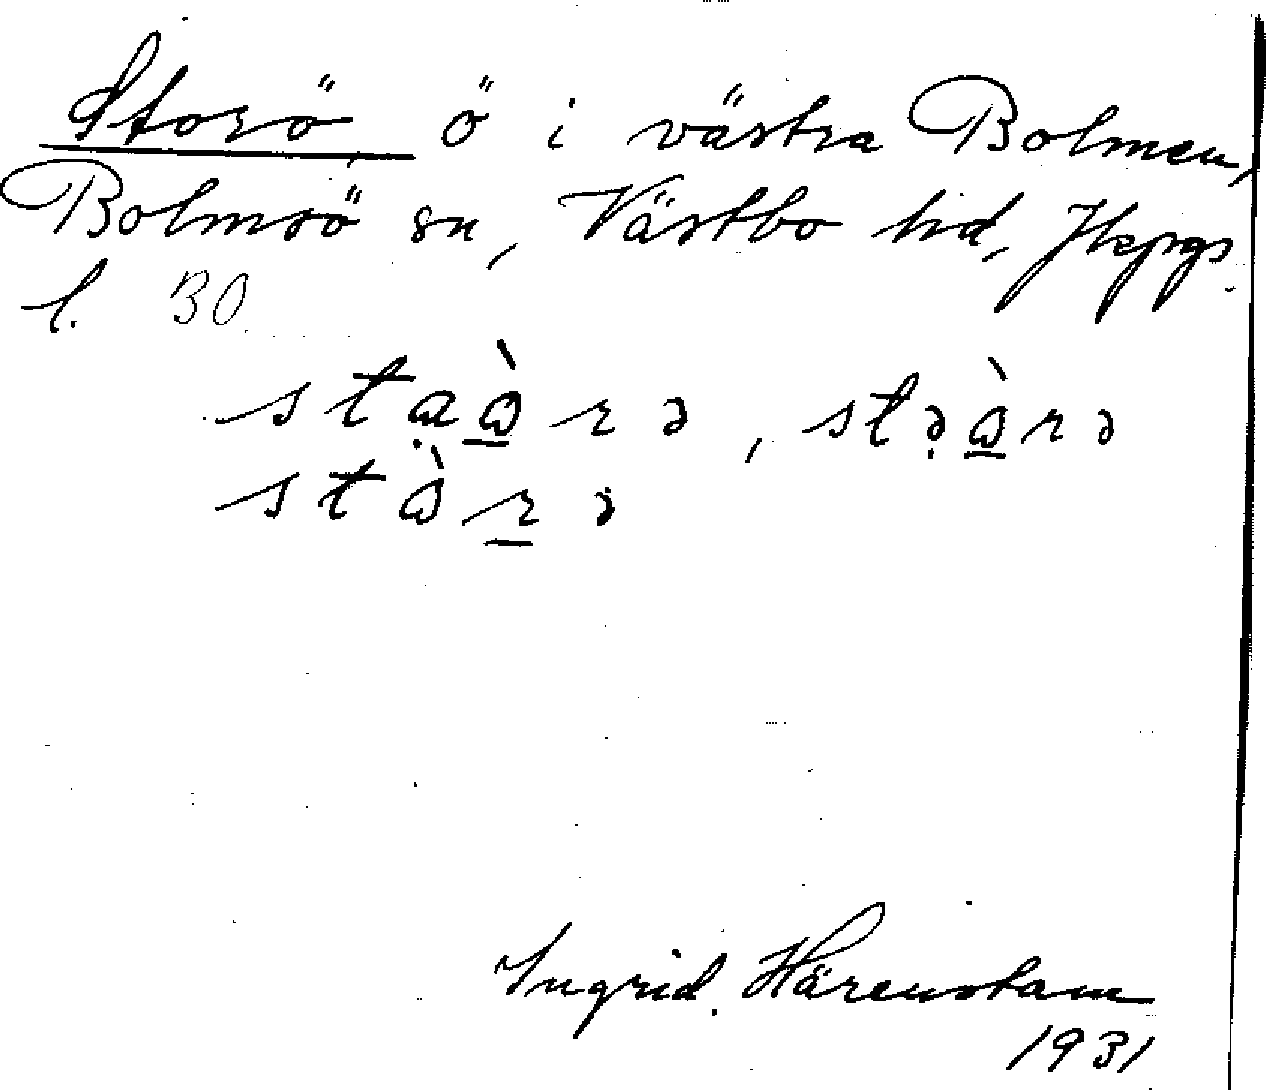 Storö ö i västra Bolmen,
Bolmsö sn, Västbo hd, Jkpgs
l. 30.
stạɷ̱̀rə, stə̣ɷ̱̀rə
stɷ̀ṟə
Ingrid Härenstam
1931